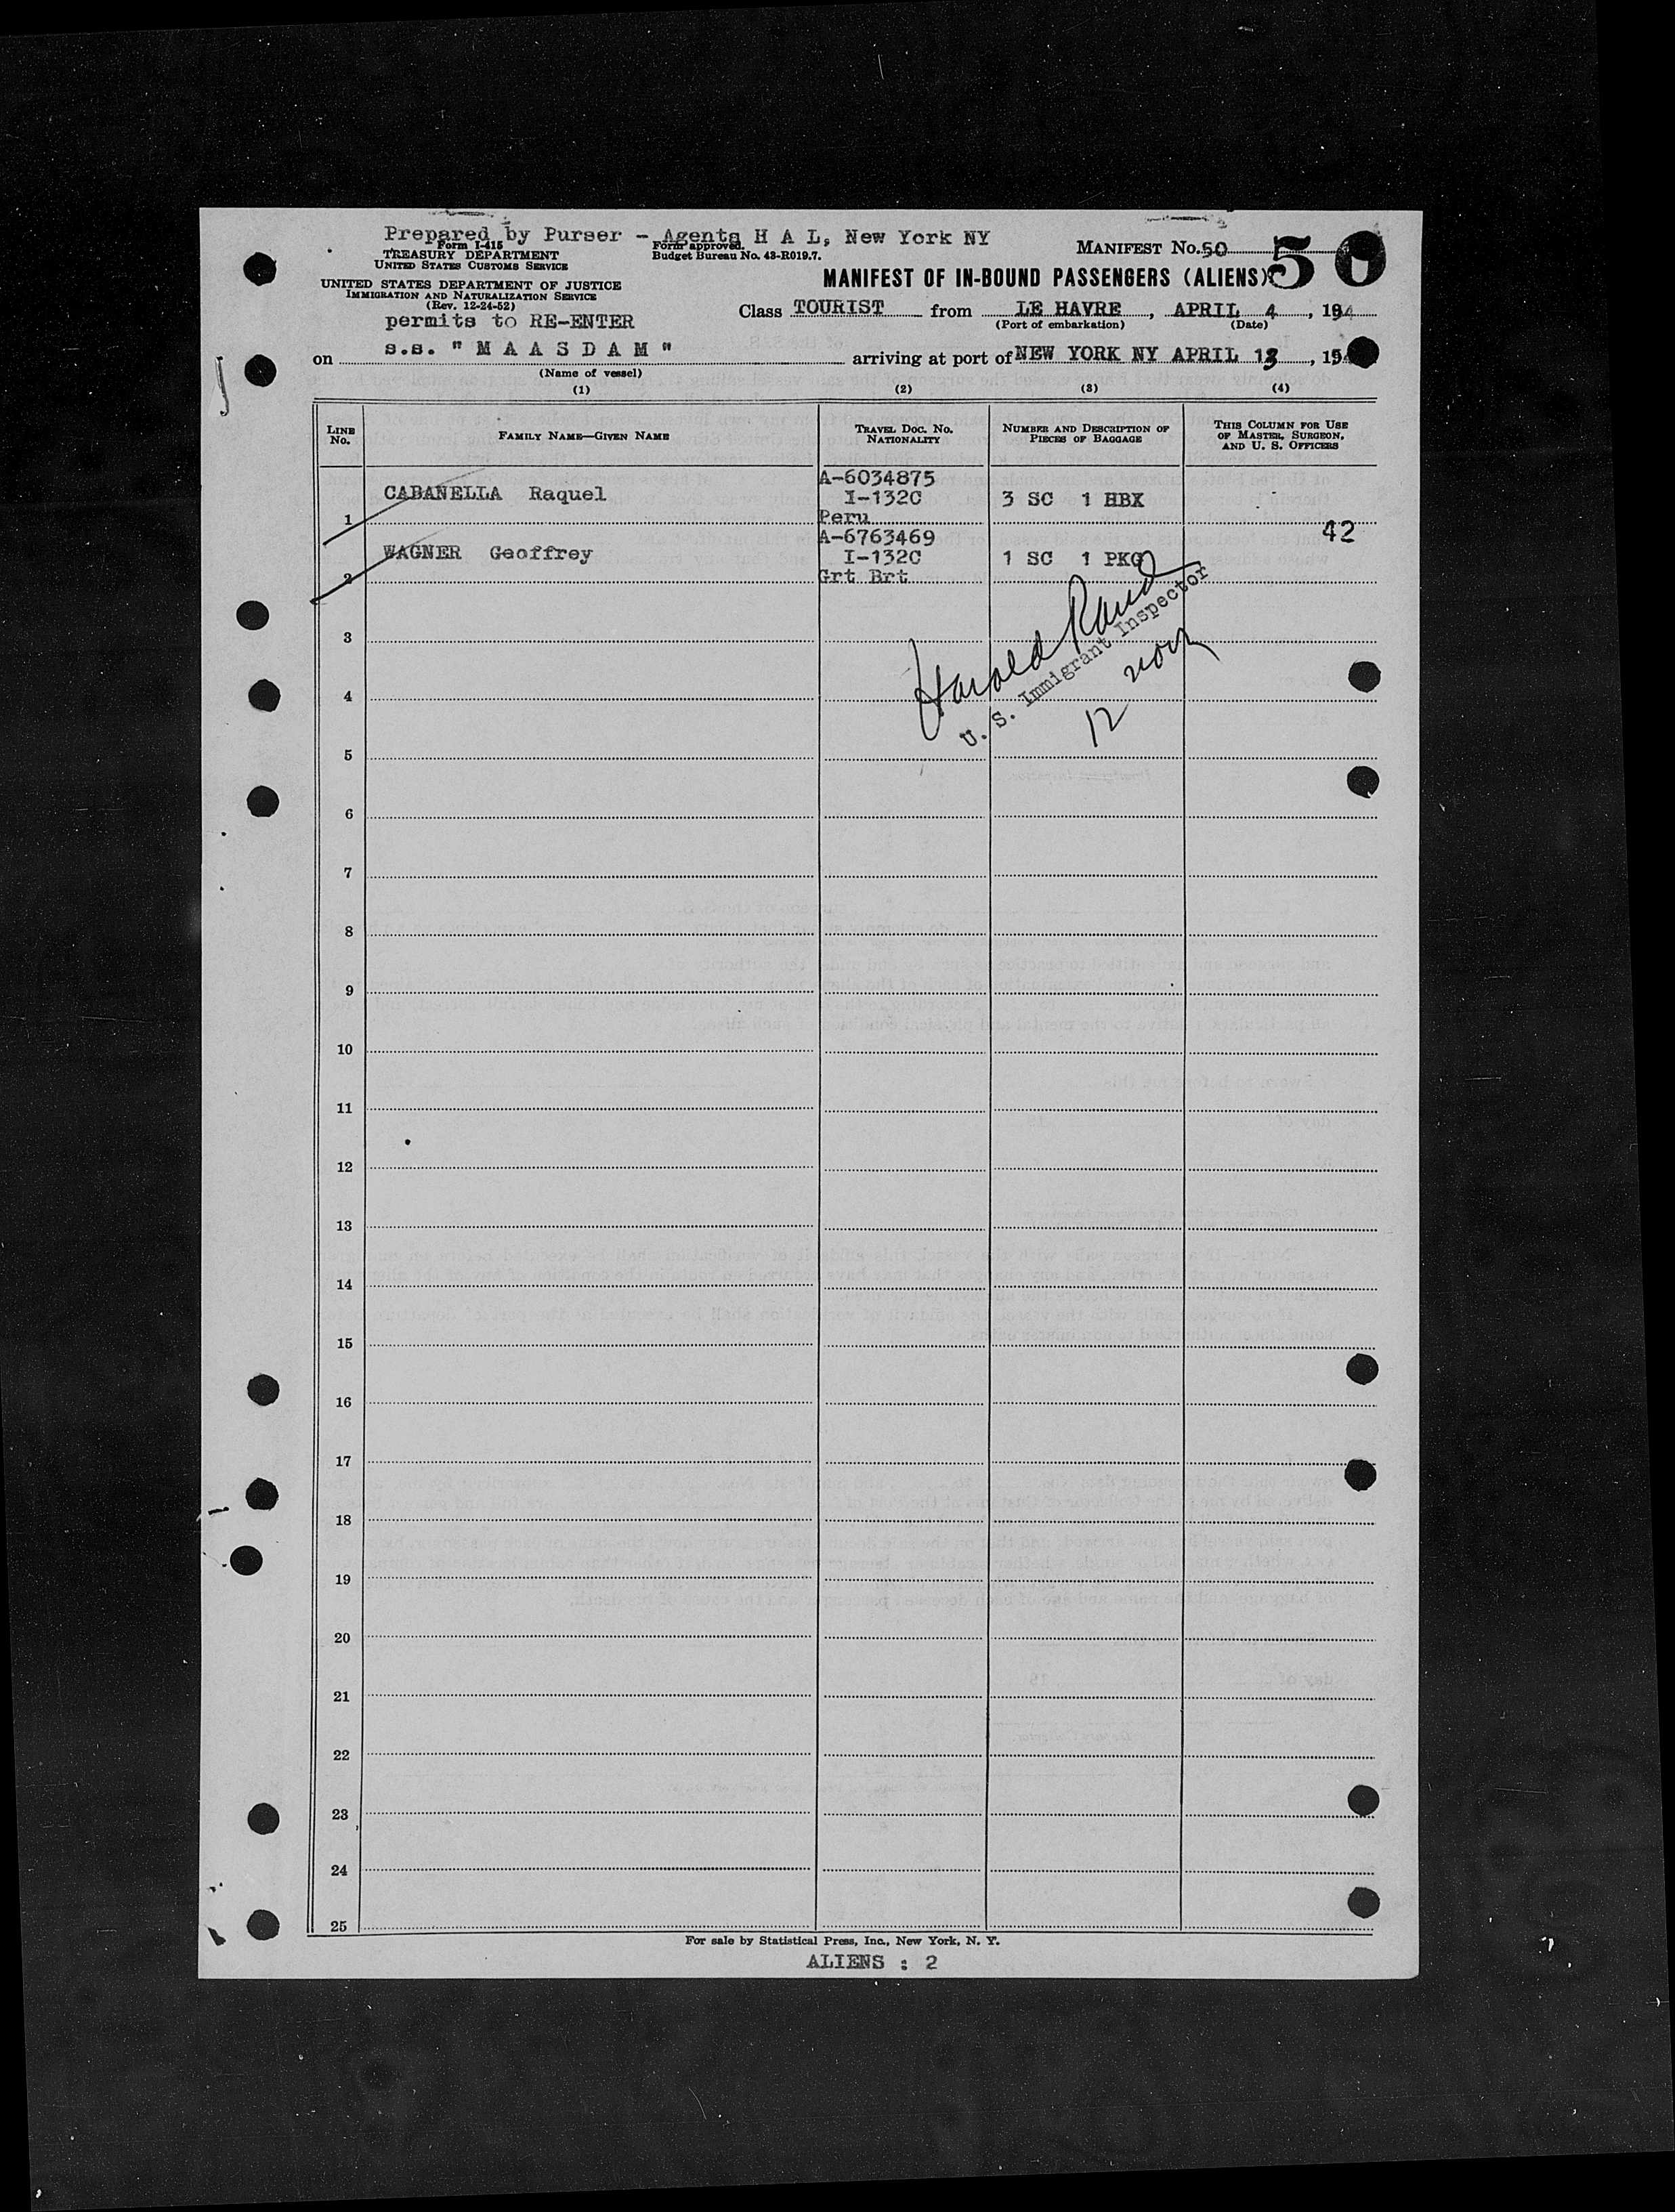 Prepared by Purser - Agents H A L, New York NY
Form I-415
TREASURY DEPARTMENT
UNITED STATES CUSTOMS SERVICE
Form approved.
Budget Bureau No. 43-R019.7.
MANIFEST No. 50
50
UNITED STATES DEPARTMENT OF JUSTICE
IMMIGRATION AND NATURALIZATION SERVICE
(Rev. 12-24-52)
MANIFEST OF IN-BOUND PASSENGERS (ALIENS)
permits to RE-ENTER
Class TOURIST from LE HAVRE, APRIL 4, 19
(Port of embarkation) (Date)
on s.s. " M A A S D A M " arriving at port of NEW YORK NY APRIL 13, 19
(Name of vessel)
(1) (2) (3) (4)
LINE No.
FAMILY NAME—GIVEN NAME
TRAVEL DOC. NO. NATIONALITY
NUMBER AND DESCRIPTION OF PIECES OF BAGGAGE
THIS COLUMN FOR USE OF MASTER, SURGEON, AND U. S. OFFICERS
1 CABANELLA Raquel A-6034875 I-132C Peru 3 SC 1 HBX
42
2 WAGNER Geoffrey A-6763469 I-132C Grt Brt 1 SC 1 PKG
Harold Rand
U. S. Immigrant Inspector
12 noon
3
4
5
6
7
8
9
10
11
12
13
14
15
16
17
18
19
20
21
22
23
24
25
For sale by Statistical Press, Inc., New York, N. Y.
ALIENS : 2